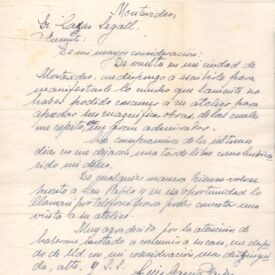 Montevideo,
Sr. Lazar Segall.
Presente:
De mi mayor consideración:
De vuelta en mi ciudad de
Montevideo, me dispongo a escribirle para
manifestarle lo mucho que lamenté no
haber podido concurrir a su atelier para
apreciar sus magníficas obras, de las cuales
me repito, un gran admirador.
Mis compromisos de los últimos
días no me dejaron una tarde libre como hubiera
sido mi deseo.
De cualquier manera pienso volver
pronto a San Pablo y en esa oportunidad lo
llamaré por teléfono para poder concretar una
visita a su atelier.
Muy agradecido por la atención de
haberme invitado a concurrir a su casa, me despi-
do de Ud. con mi consideración más distingui-
da, atte. y S.S.